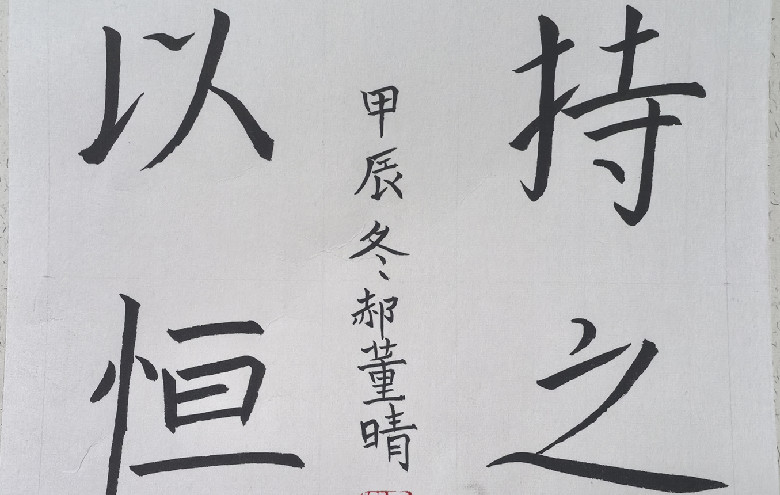 持之
甲辰冬郝董晴
以恒